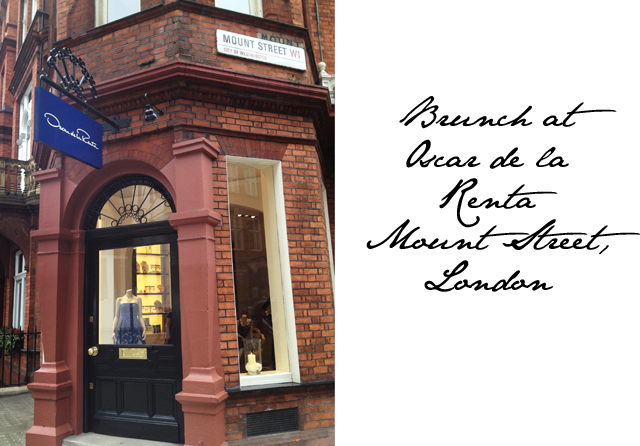 MOUNT STREET W1
CITY OF WESTMINSTER
Oscar de la Renta
Brunch at
Oscar de la
Renta
Mount Street,
London